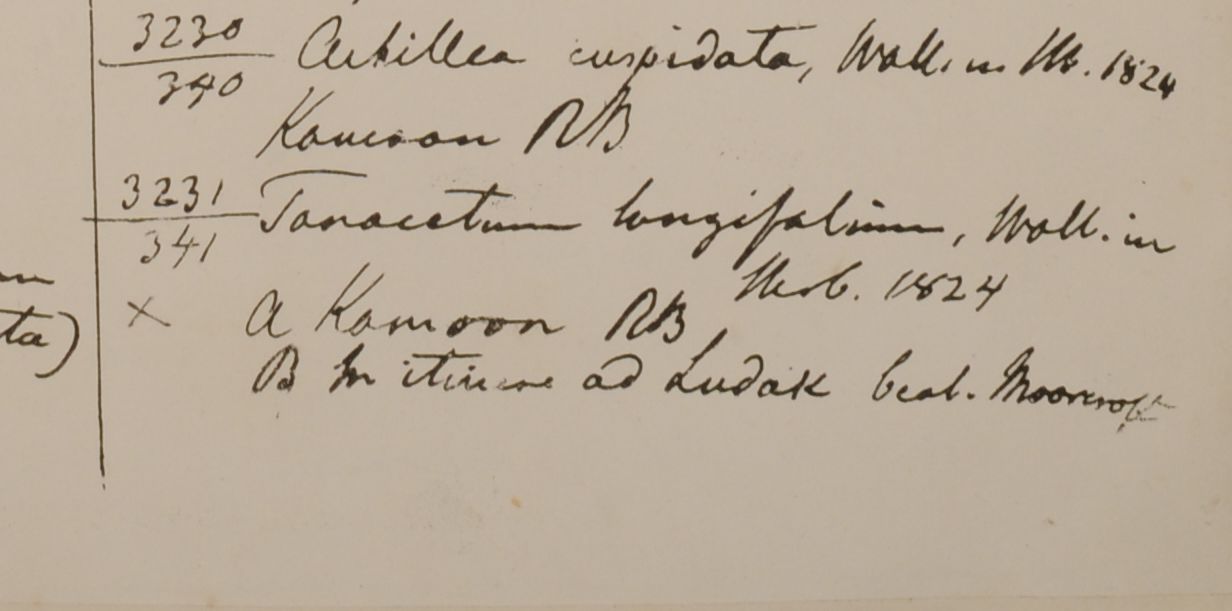 3230 Achillea cuspidata, Wall. in Hb. 1824
340
Kamoon RB
3231 Tanacetum longifolium, Wall. in
341
Herb. 1824
× A Kamoon RB
B In itinere ad Ludak beat. Moorcroft
m
ta)